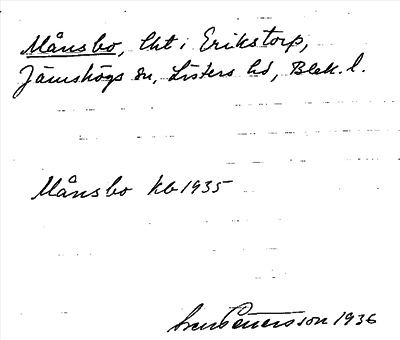 Månsbo, lht i Erikstorp,
Jämshögs sn, Listers hd, Blek. l.
Månsbo kb 1935
1936